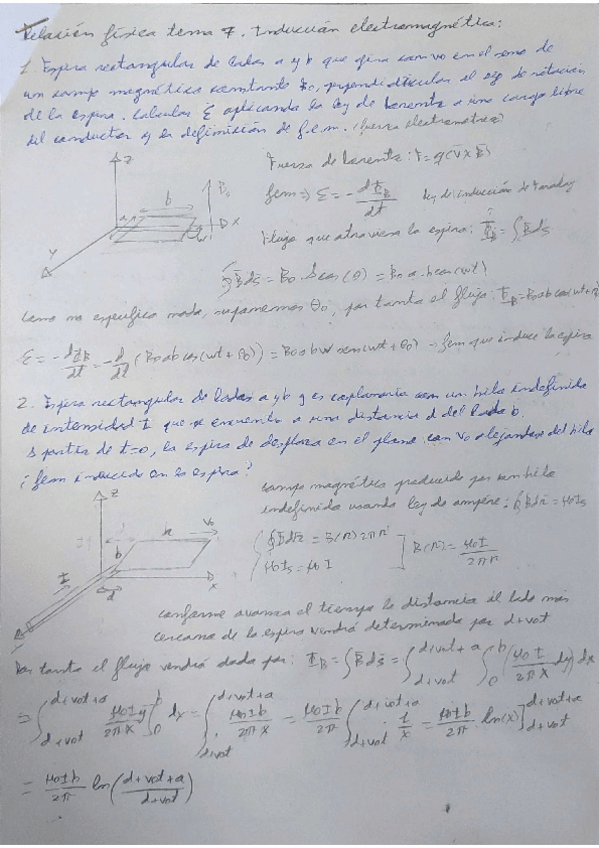 Relación física tema 7. Inducción electromagnética:
1. Espira rectangular de lados a y b que gira con w en el seno de
un campo magnético constante B₀, perpendidicular al eje de rotación
de la espira. Calcular ε aplicando la ley de Lorentz a una carga libre
del conductor y la definición de f.e.m. (fuerza electromotriz)
Fuerza de Lorentz: F = q(v̄ x B̄)
fem ⇒ ε = - dΦ_B/dt ley de inducción de Faraday
Flujo que atraviesa la espira: Φ_B = ∫ B̄ds̄
z b B₀ x y
∫B̄ds̄ = B₀ · S cos(θ) = B₀ a · b cos(wt)
Como no especifica nada, suponemos θ₀, por tanto el flujo: Φ_B = B₀ab cos(wt+θ₀)
ε = - dΦ_B/dt = - d/dt (B₀ab cos(wt + θ₀)) = B₀abw sen(wt + θ₀) → fem que induce la espira
2. Espira rectangular de lados a y b y es coplanaria con un hilo indefinido
de intensidad I que se encuentra a una distancia d del lado b.
A partir de t=0, la espira de desplaza en el plano con v₀ alejandose del hilo
¿fem inducida en la espira?
campo magnético producido por un hilo
indefinido usando ley de ampère: ∮B̄dr̄ = μ₀Is
z a v₀ b I d x
∮B̄dr̄ = B(r) 2πr
μ₀Is = μ₀I
B(r) = μ₀I/2πr
conforme avanza el tiempo la distancia al lado más
cercano de la espira vendrá determinada por d+v₀t
Por tanto el flujo vendrá dado por: Φ_B = ∫B̄ds̄ = ∫_{d+v₀t}^{d+v₀t+a} ∫_0^b (μ₀I/2πx dy) dx
= ∫_{d+v₀t}^{d+v₀t+a} μ₀Iy/2πx ]_0^b dx = ∫_{d+v₀t}^{d+v₀t+a} μ₀Ib/2πx = μ₀Ib/2π ∫_{d+v₀t}^{d+v₀t+a} 1/x = μ₀Ib/2π · ln(x)]_{d+v₀t}^{d+v₀t+a}
= μ₀Ib/2π ln(d+v₀t+a/d+v₀t)